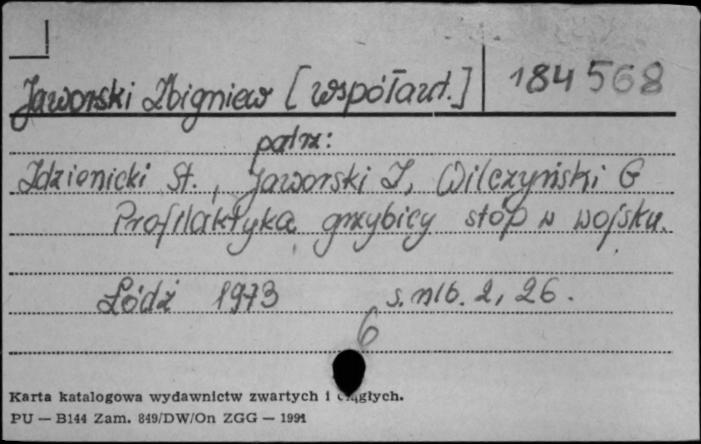 Jaworski Zbigniew [współaut.] 184568
patrz:
Idzionicki St., Jaworski I, Wilczyński G
Profilaktyka grzybicy stóp w wojsku.
Łódź 1973 s. nlb. 2, 26.
6
Karta katalogowa wydawnictw zwartych i ciągłych.
PU — B144 Zam. 849/DW/On ZGG — 1991